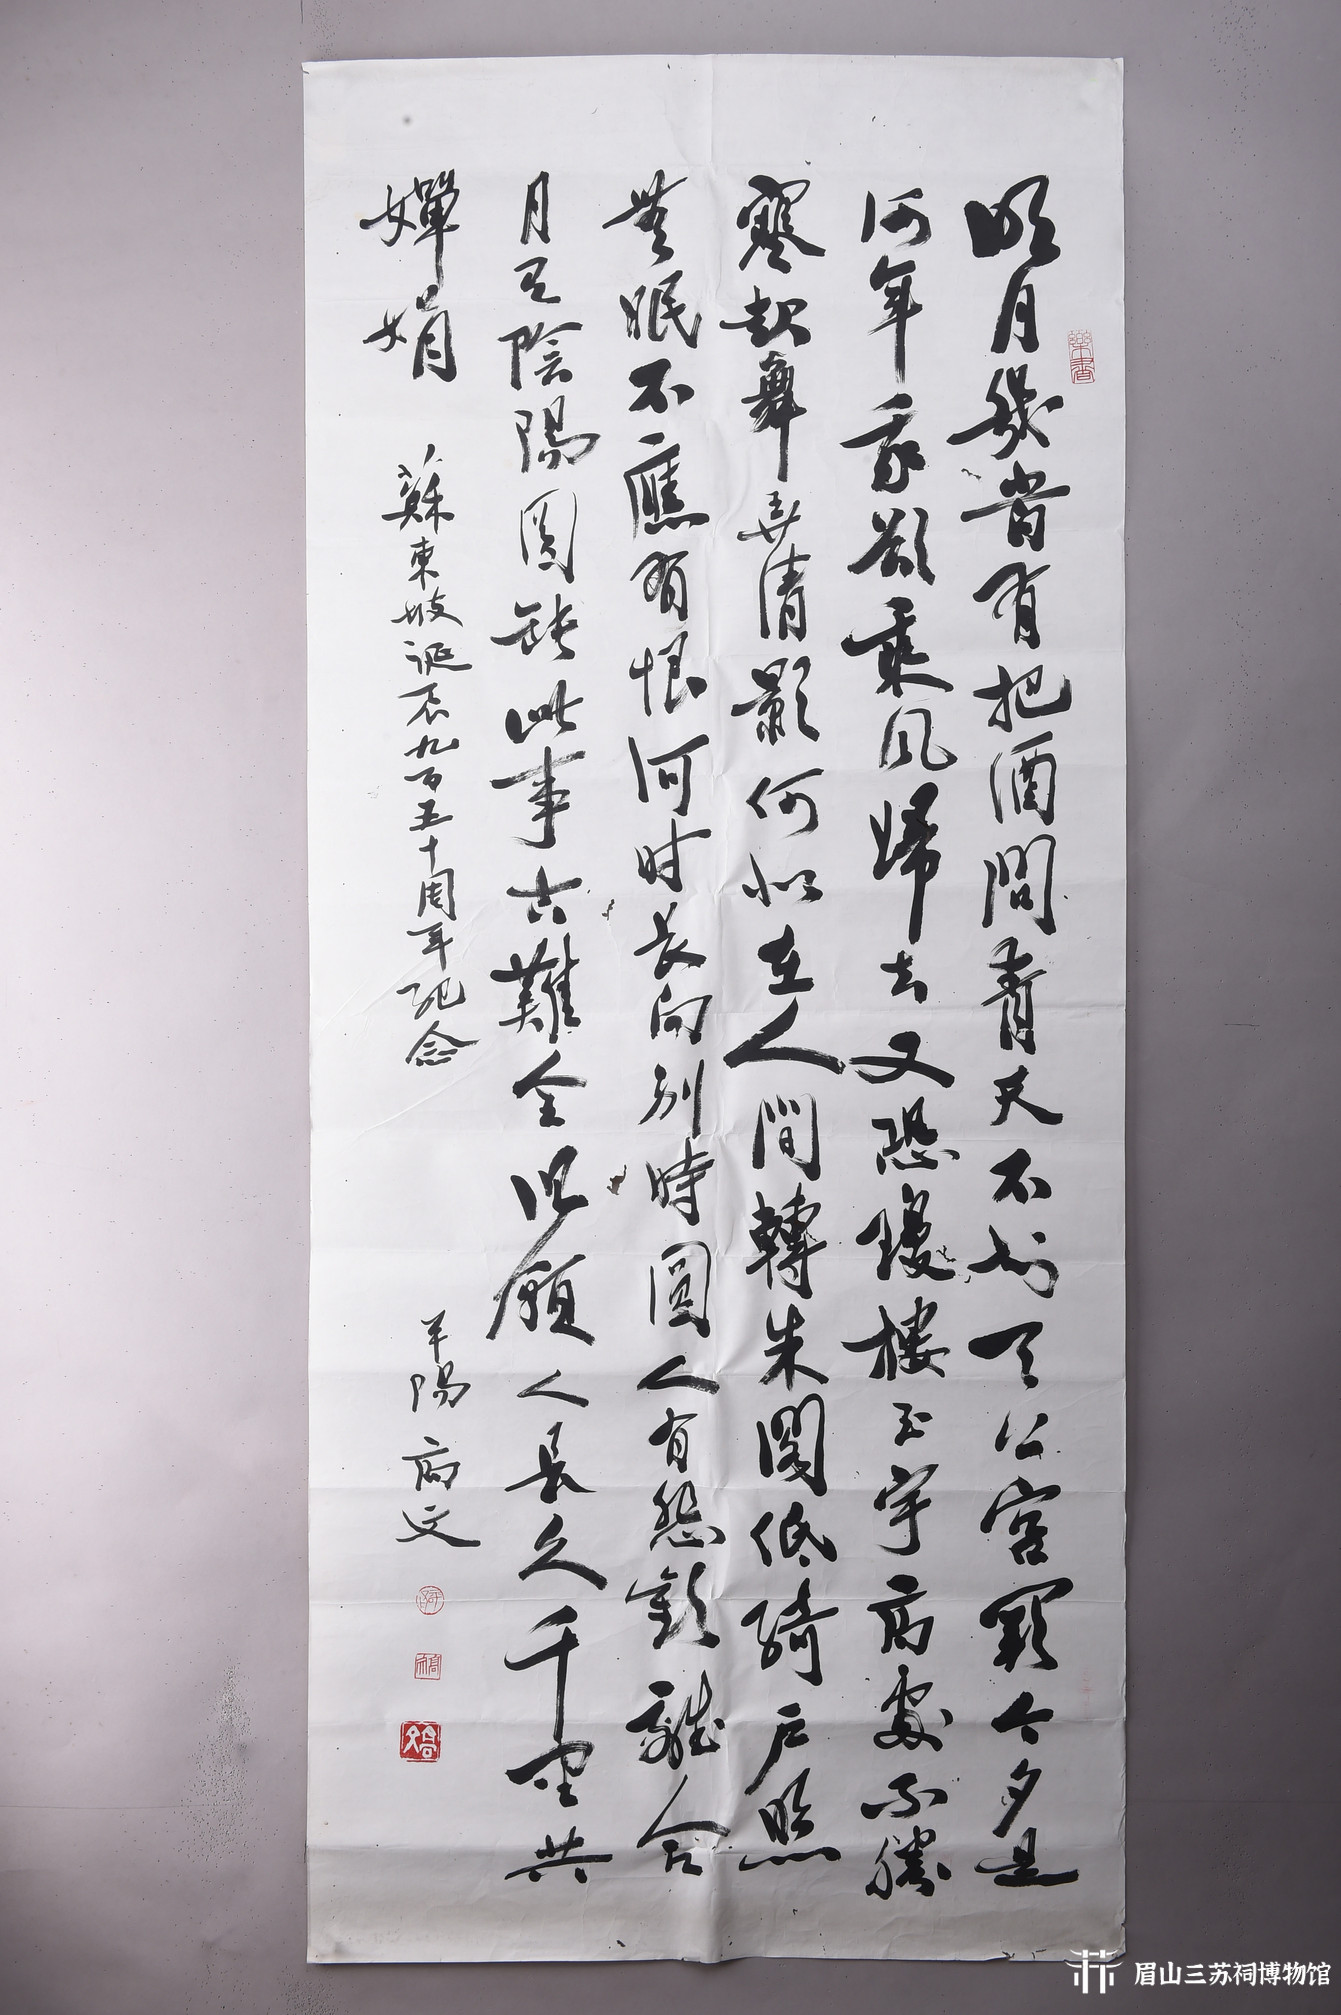 明月幾旹有把酒問青天不知天上宮闕今夕是
何年我欲乘風歸去又恐瓊樓玉宇高處不勝
寒起舞弄清影何似在人間轉朱閣低綺戶照
無眠不應有恨何时長向別時圓人有悲歡離合
月有陰陽圓缺此事古難全但願人長久千里共
嬋娟
蘇東坡誕辰九百五十周年紀念
陽 高文
眉山三苏祠博物馆